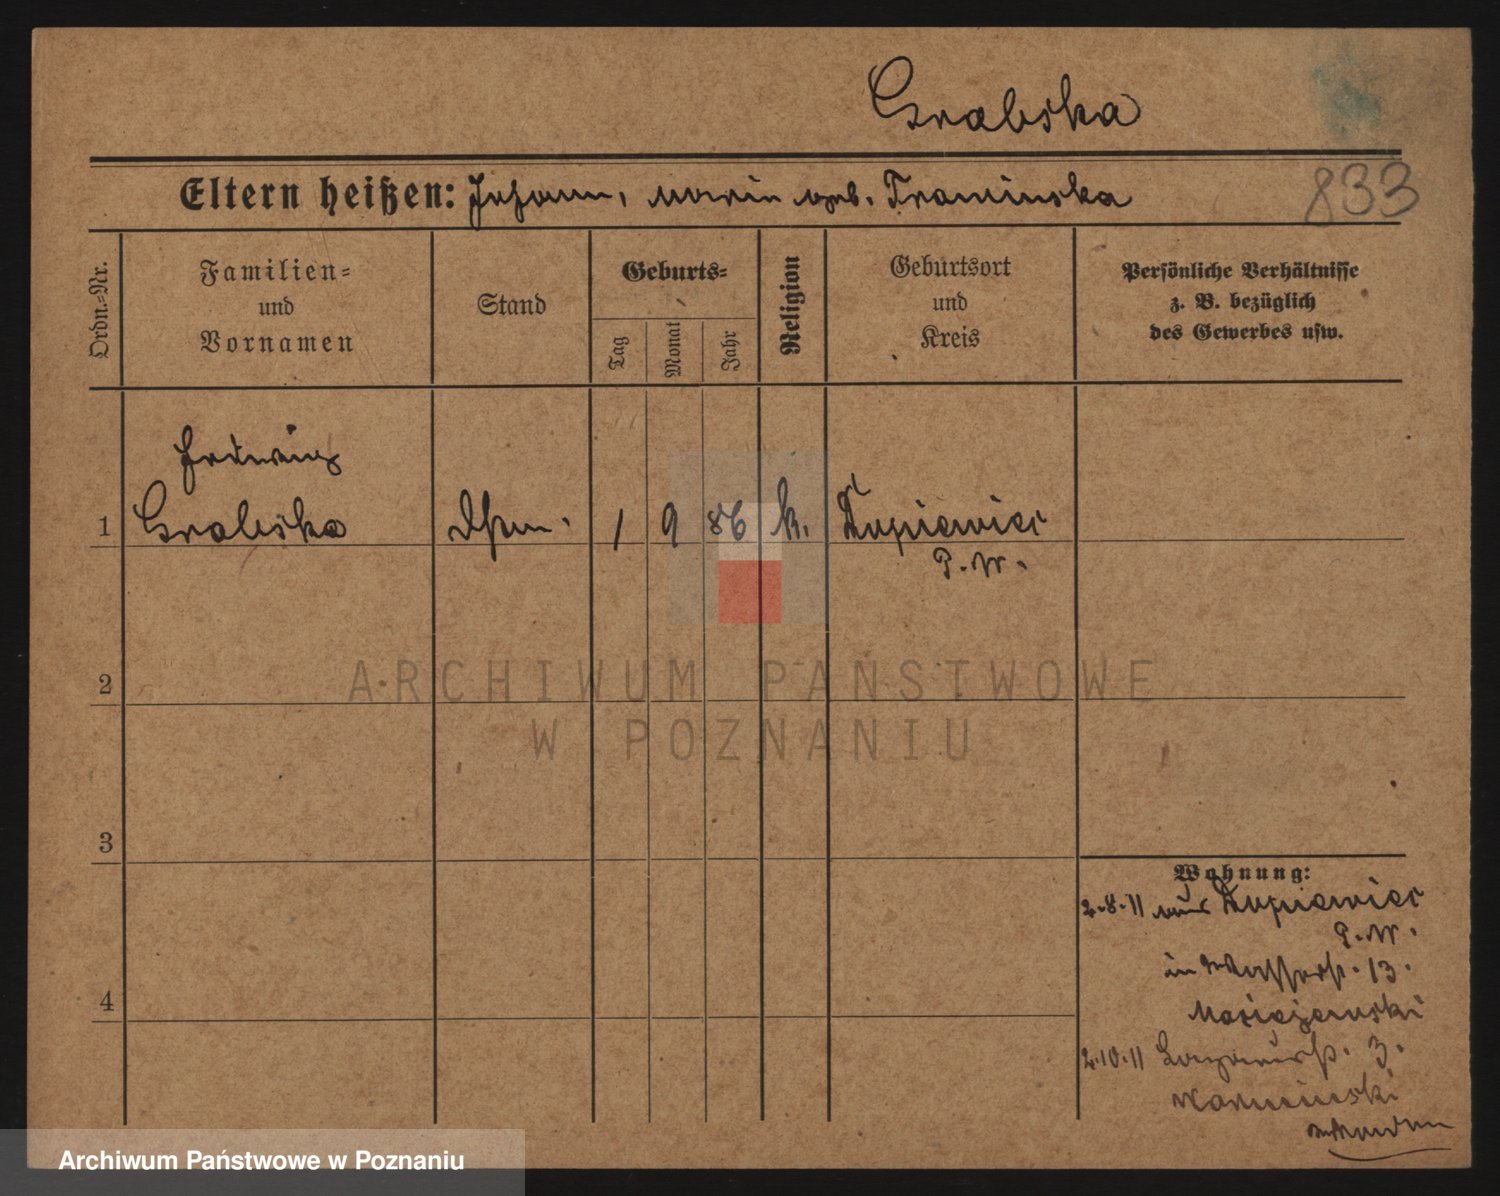 Grabska
Eltern heißen: Johann, Maria geb. Framinska
833
Ordn.=Nr.
Familien=
und
Vornamen
Stand
Geburts=
Tag
Monat
Jahr
Religion
Geburtsort
und
Kreis
Persönliche Verhältnisse
z. B. bezüglich
des Gewerbes usw.
Hedwig
1 Grabska
1 9 86 k.
P. W.
2
3
4
Wohnung:
2.8.11 aus
P. W.
in Wasserst. 13.
Maciejewski
2.10.11 3.
ARCHIWUM PAŃSTWOWE
W POZNANIU
Archiwum Państwowe w Poznaniu